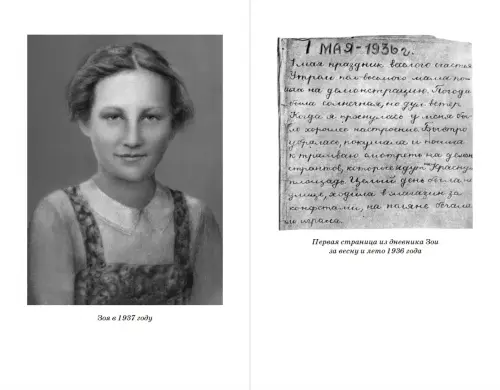 Зоя в 1937 году
1 МАЯ-1936 г.
1 мая праздник, веселого счастья
Утром пол-восьмого мама по-
шла на демонстрацию. Погода
была солнечная, но дул ветер
Когда я проснулась у меня бы-
ло хорошее настроение. Быстро
убралась, покушала и пошла
к трамваю смотреть на демон-
странтов, которые идут Красную
площадь. Целый день была на
улице, ходила в магазин за
конфетами, на поляне бегала
играла.
Первая страница из дневника Зои
за весну и лето 1936 года